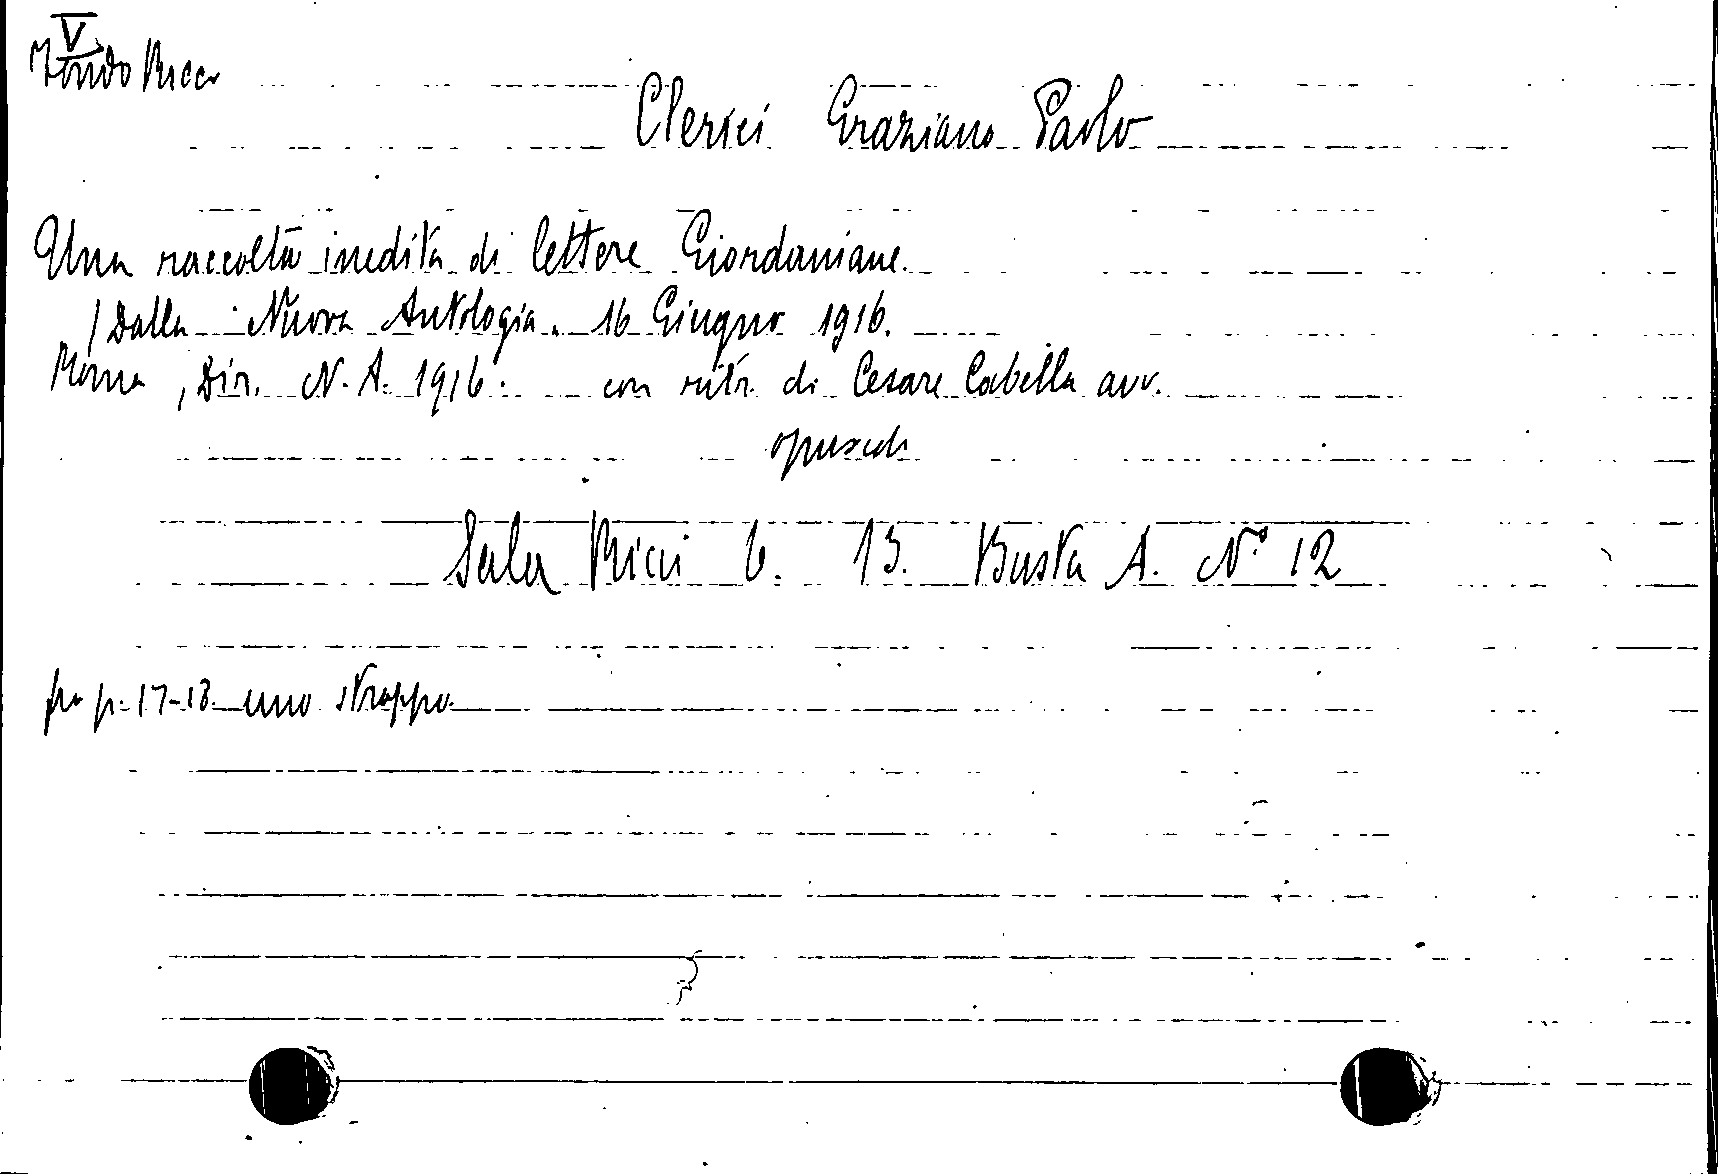 V
Fondo Ricci
Clerici Graziano Paolo
Una raccolta inedita di lettere Giordaniane.
/ Dalla Nuova Antologia. 16 Giugno 1916.
Roma, Dir. N. A. 1916. con ritr. di Cesare Cabella avv.
opuscolo
Sala Ricci 6. 13. Busta A. N° 12
fra p. 17-18 uno strappo.